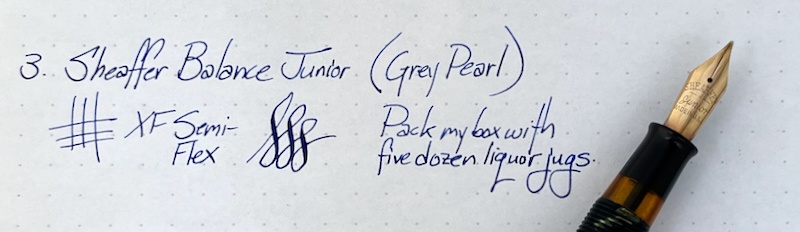 3. Sheaffer Balance Junior (Grey Pearl)
XF Semi-
Flex
Pack my box with
five dozen liquor jugs.